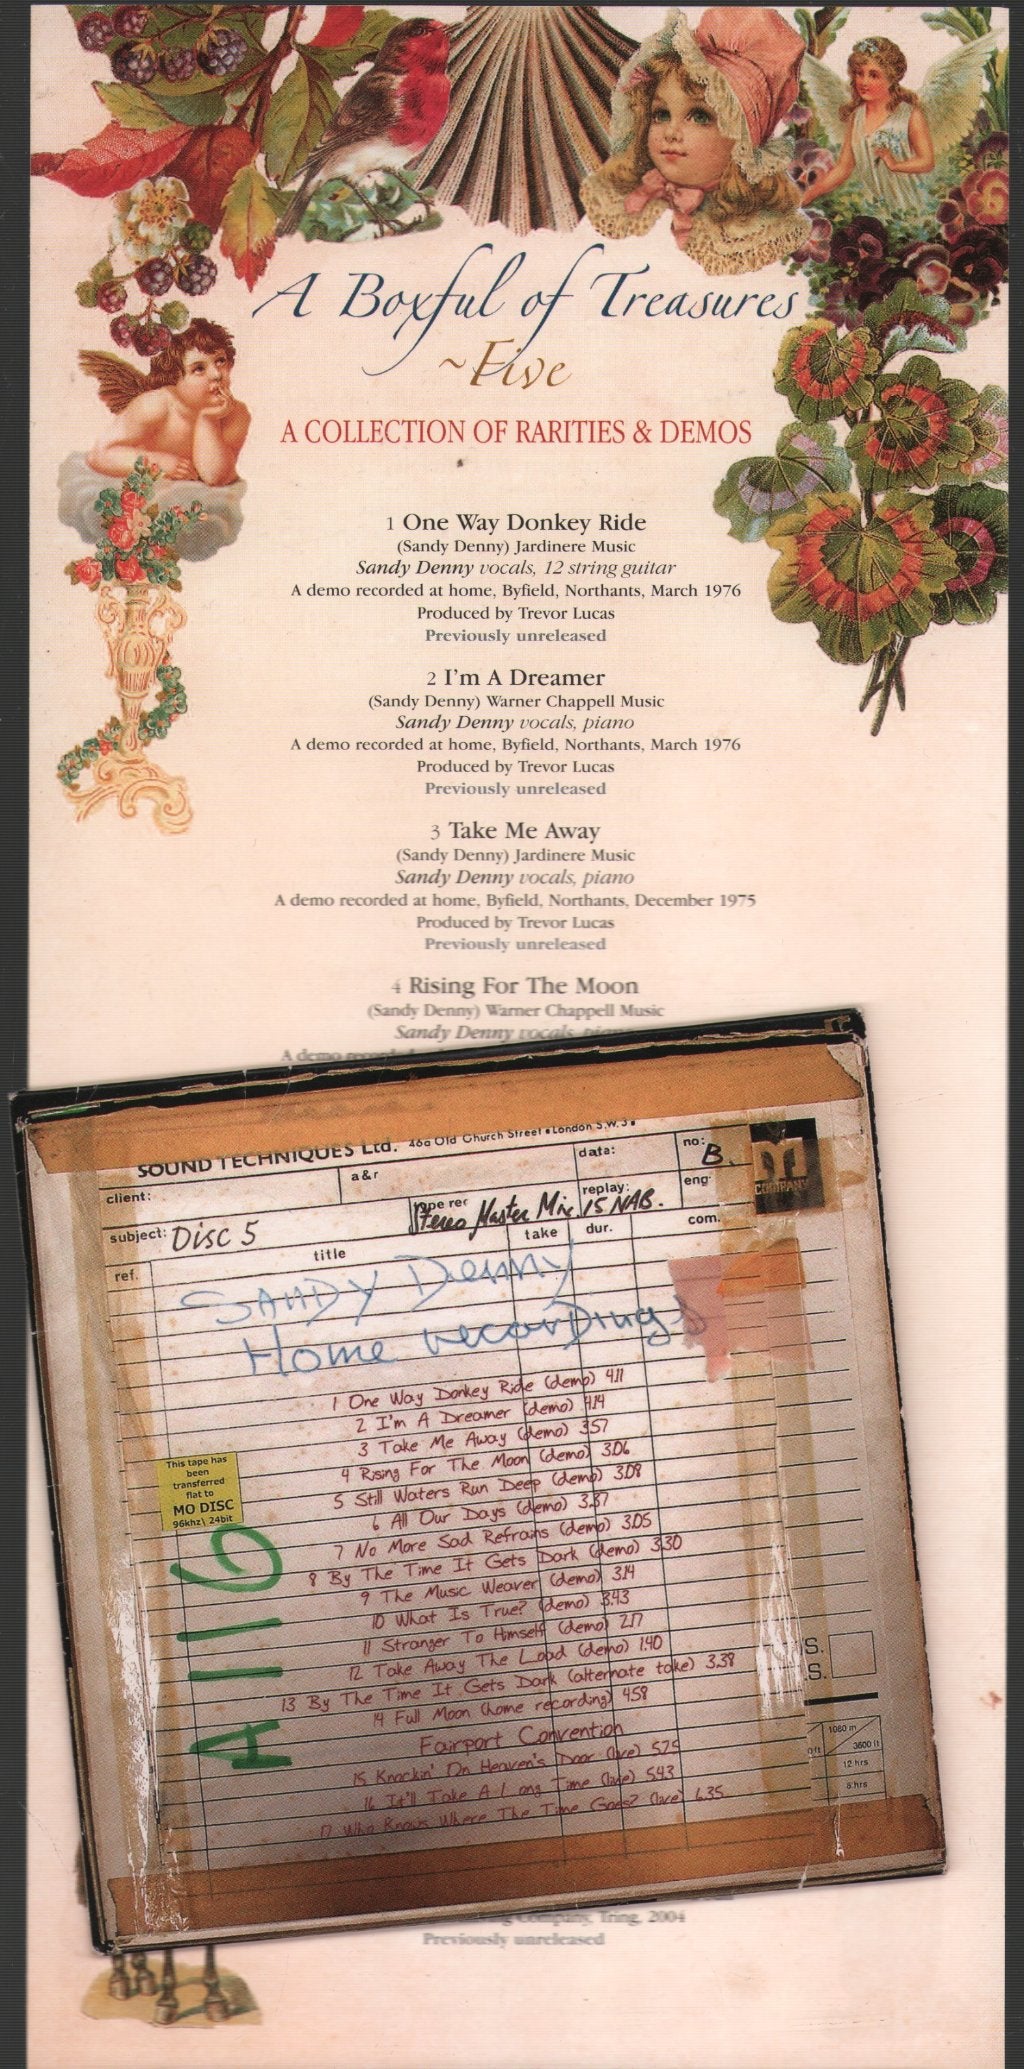 A Boxful of Treasures
~Five
A COLLECTION OF RARITIES & DEMOS
1 One Way Donkey Ride
(Sandy Denny) Jardinere Music
Sandy Denny vocals, 12 string guitar
A demo recorded at home, Byfield, Northants, March 1976
Produced by Trevor Lucas
Previously unreleased
2 I'm A Dreamer
(Sandy Denny) Warner Chappell Music
Sandy Denny vocals, piano
A demo recorded at home, Byfield, Northants, March 1976
Produced by Trevor Lucas
Previously unreleased
3 Take Me Away
(Sandy Denny) Jardinere Music
Sandy Denny vocals, piano
A demo recorded at home, Byfield, Northants, December 1975
Produced by Trevor Lucas
Previously unreleased
4 Rising For The Moon
(Sandy Denny) Warner Chappell Music
Sandy Denny vocals, piano
A demo
SOUND TECHNIQUES Ltd. 46a Old Church Street • London S.W.3 •
client:
a & r
data:
no: B.
M
COMPANY
subject: Disc 5
Stereo Master Mix
replay: 15 NAB.
eng
ref.
title
take
dur.
com.
Sandy Denny
Home recordings
1 One Way Donkey Ride (demo) 4.11
2 I'm A Dreamer (demo) 4.14
3 Take Me Away (demo) 3.57
4 Rising For The Moon (demo) 3.06
5 Still Waters Run Deep (demo) 3.08
6 All Our Days (demo) 3.37
7 No More Sad Refrains (demo) 3.05
8 By The Time It Gets Dark (demo) 3.30
9 The Music Weaver (demo) 3.14
10 What Is True? (demo) 3.43
11 Stranger To Himself (demo) 2.17
12 Take Away The Load (demo) 1.40
13 By The Time It Gets Dark (alternate take) 3.38
14 Full Moon (home recording) 4.58
Fairport Convention
15 Knockin' On Heaven's Door (live) 5.25
16 It'll Take A Long Time (live) 5.43
17 Who Knows Where The Time Goes? (live) 6.35
This tape has
been
transferred
flat to
MO DISC
96khz\ 24bit
A116
S.
S.
1080 m
3600 ft
12 hrs
8 hrs
Company, Tring, 2004
Previously unreleased